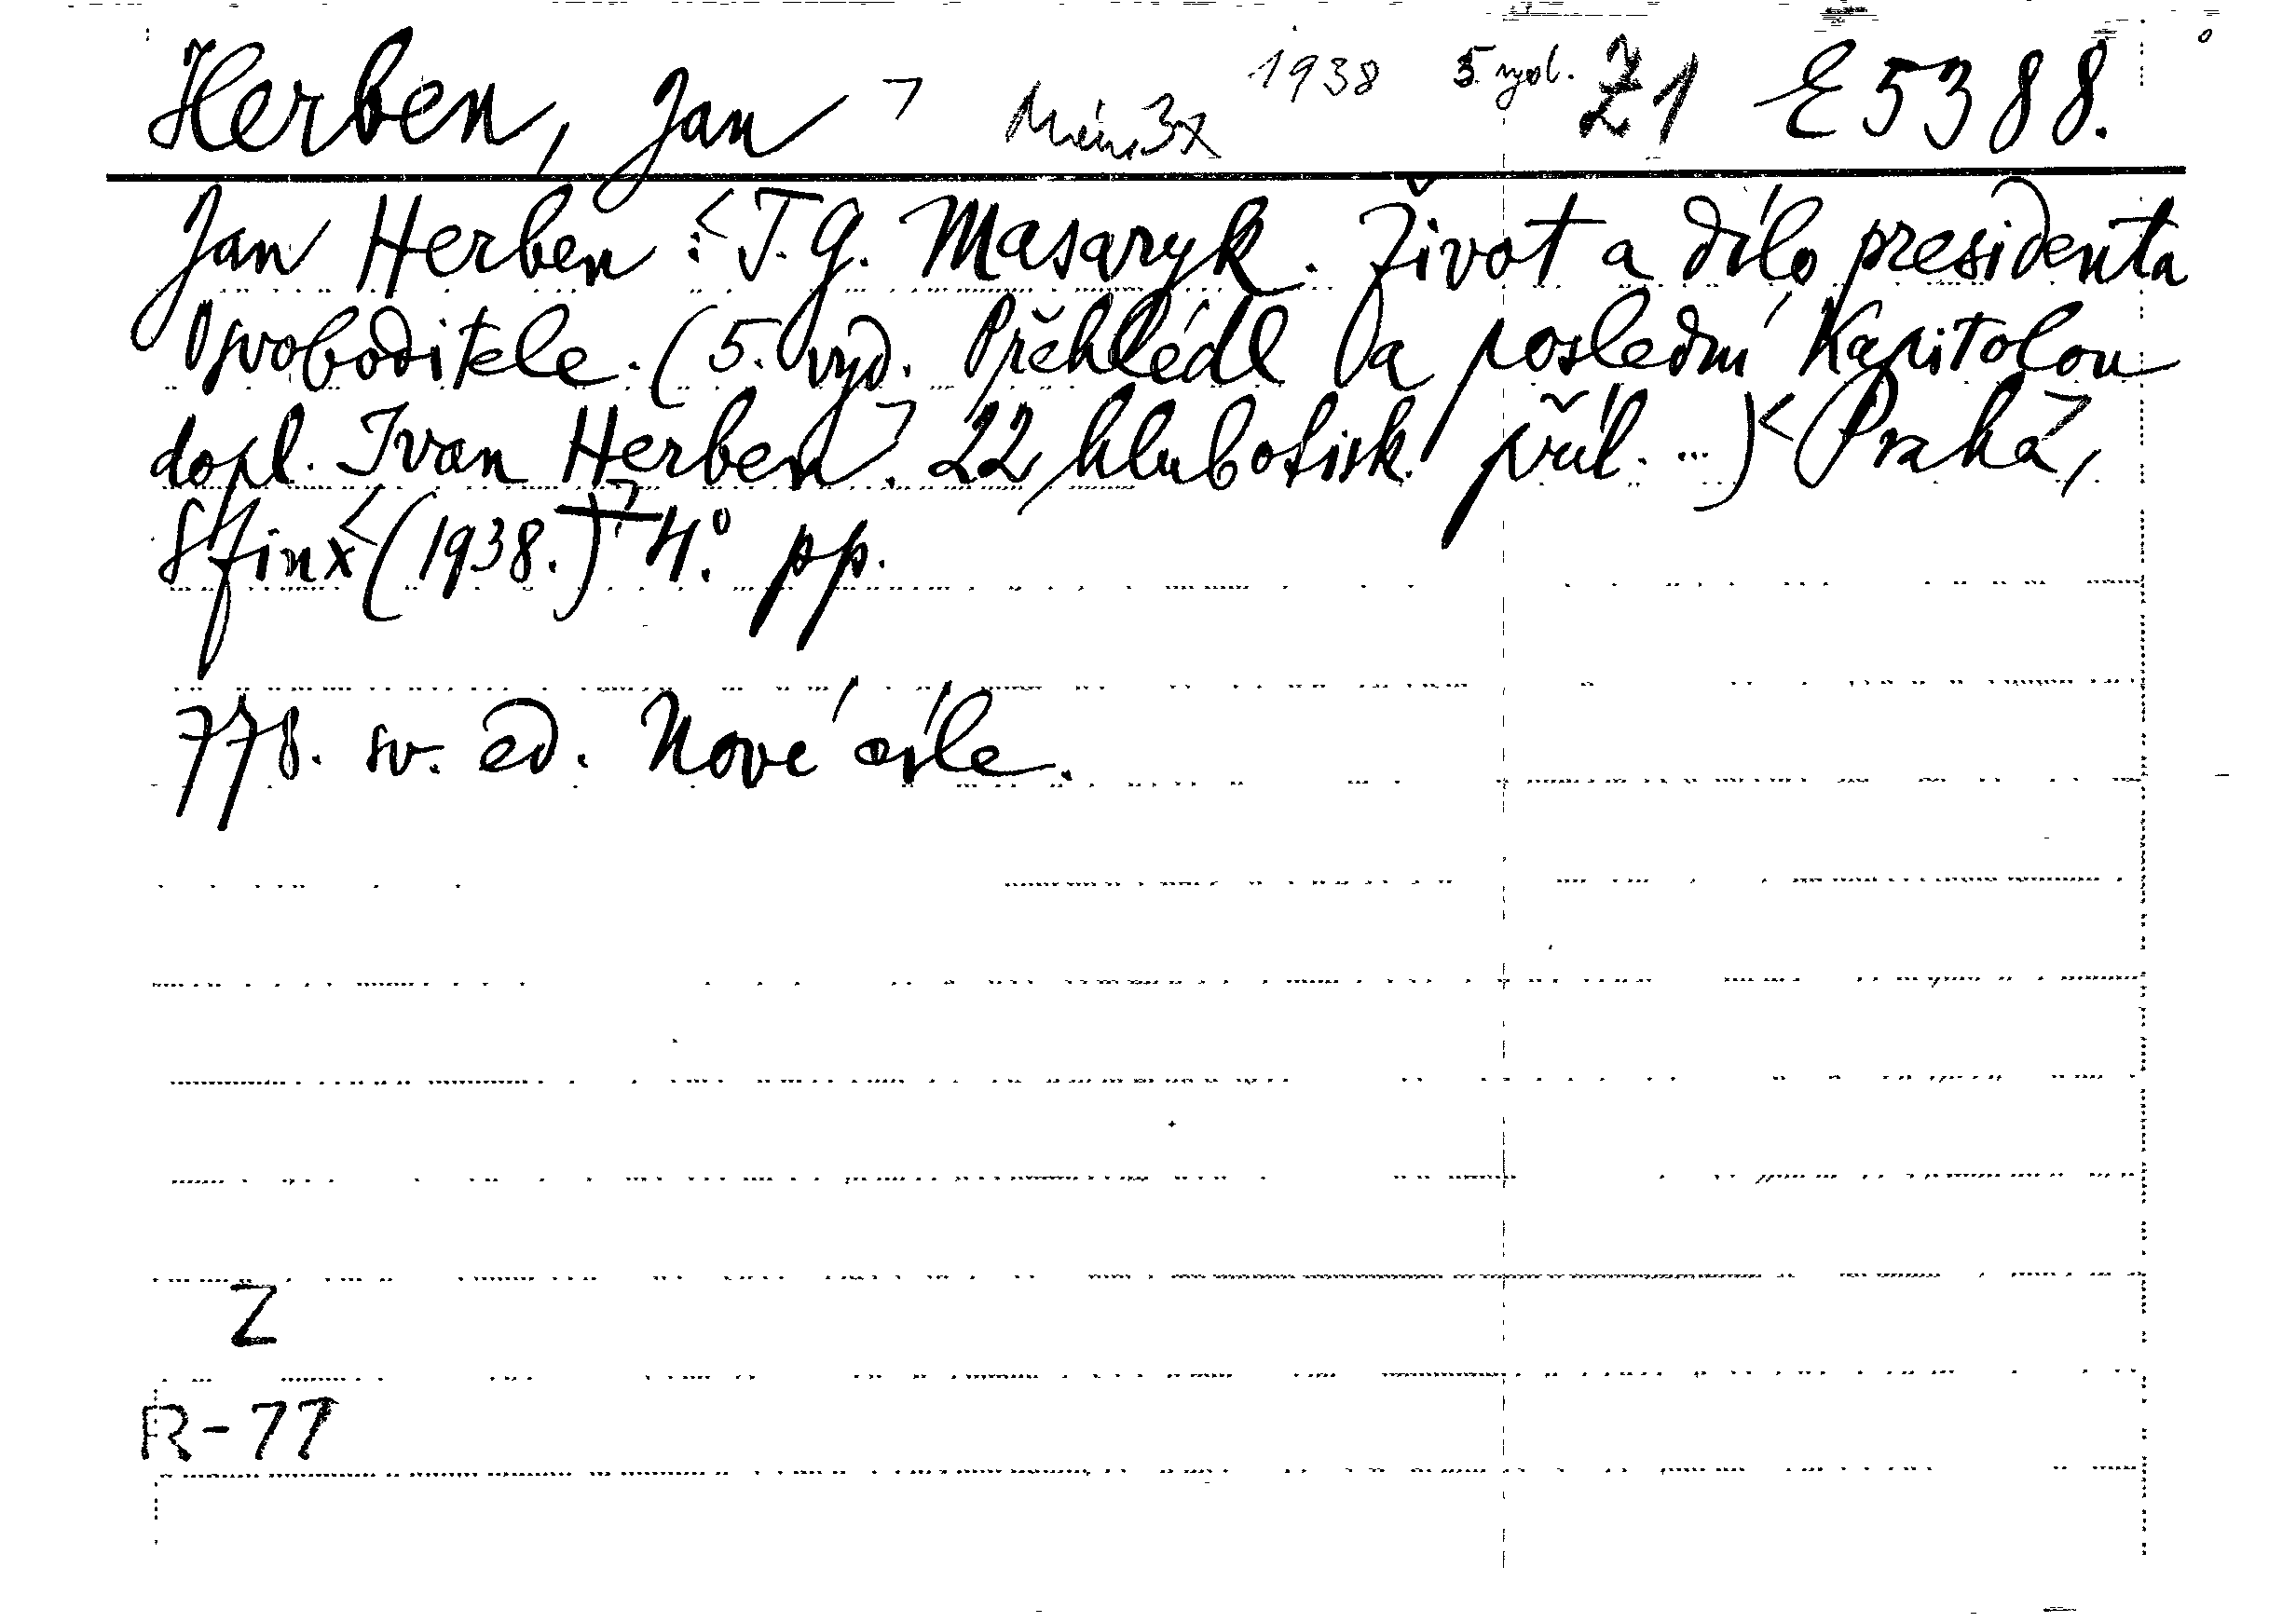 Herben, Jan 1938 5. vyd. Z1 E 5388.
Jan Herben : T. G. Masaryk. Život a dílo presidenta
Osvoboditele. (5. vyd. Přehlédl a poslední kapitolou
dopl. Ivan Herben. 22 hlubotisk. příl. ...) Praha,
Sfinx (1938.) 4.° pp.
778. sv. ed. Nové cíle.
Z
R-77